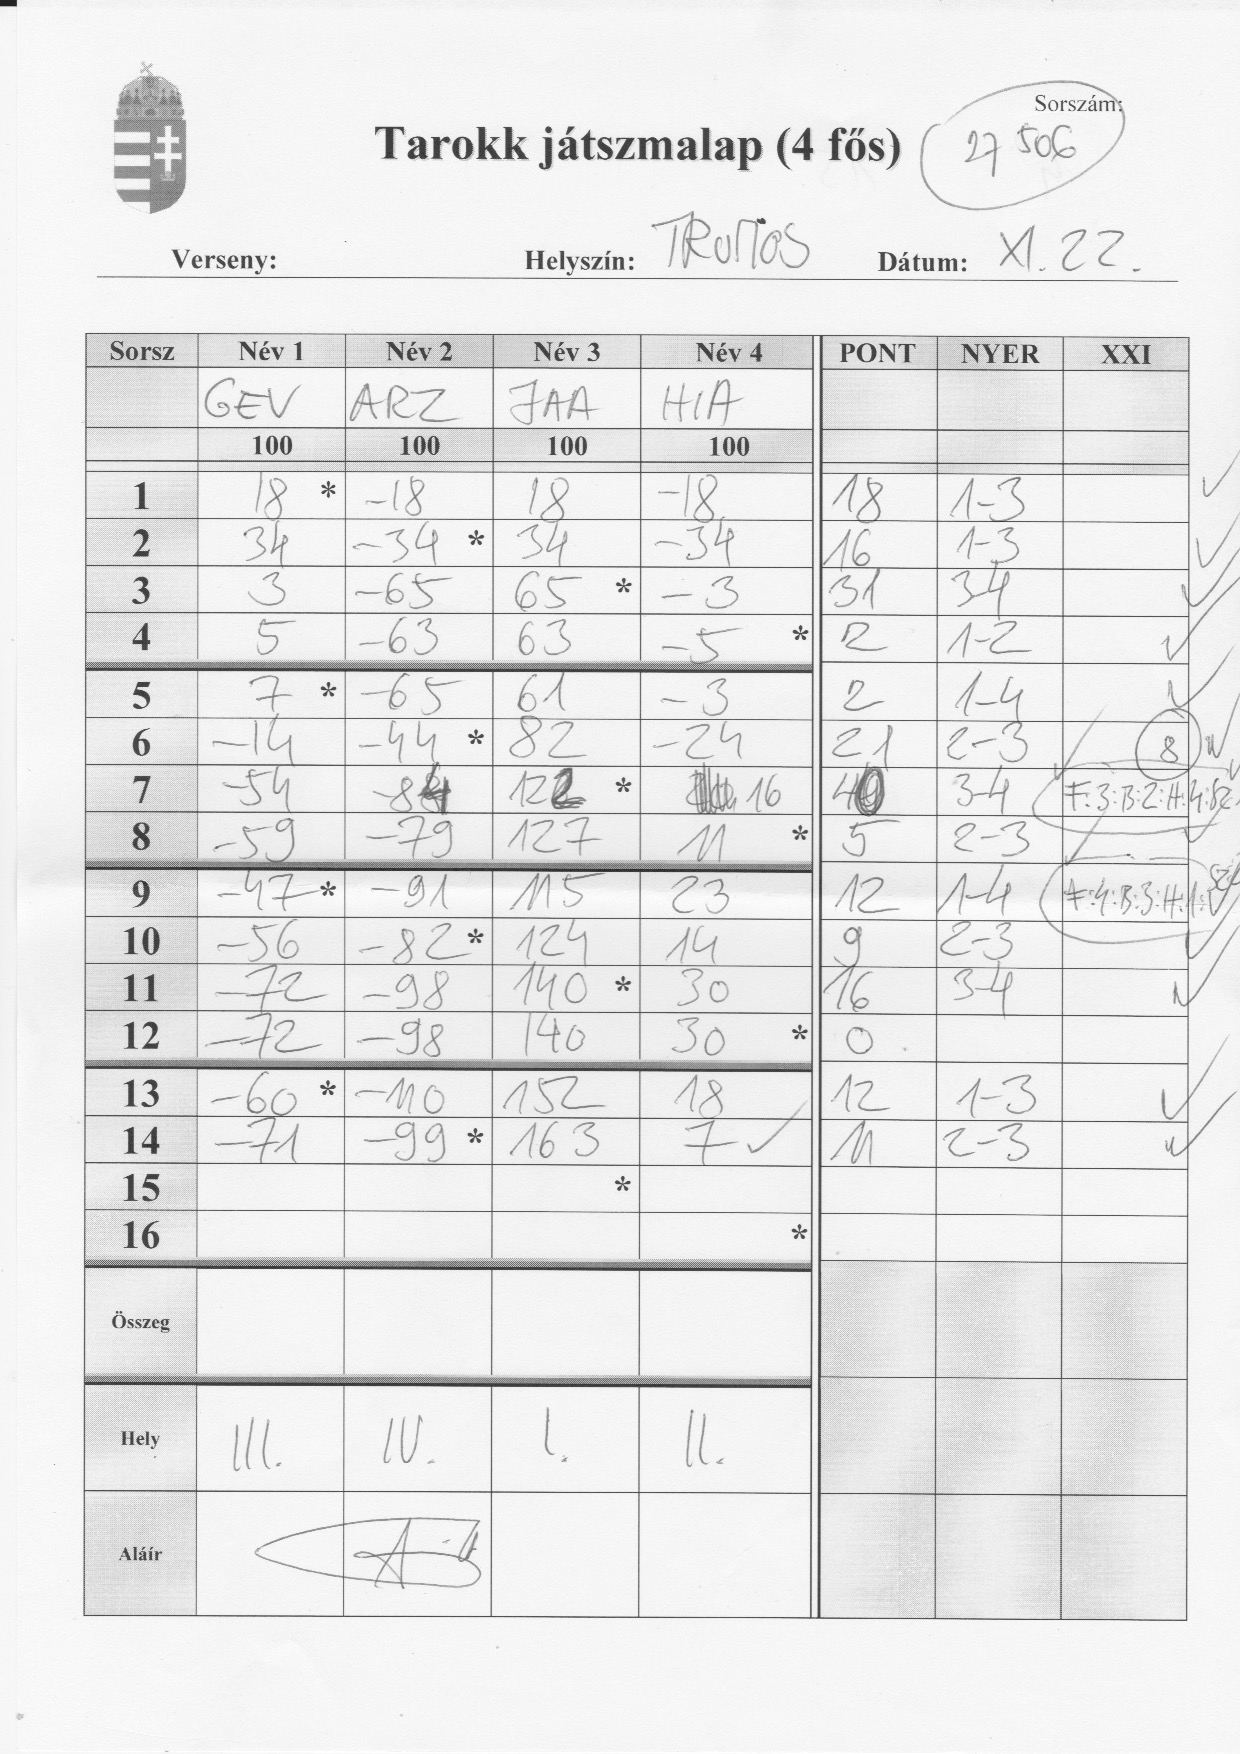 Sorszám:
27 506
Tarokk játszmalap (4 fős)
Verseny: Helyszín: Dátum: XI. 22.
Sorsz Név 1 Név 2 Név 3 Név 4 PONT NYER XXI
GEV ARZ JAA HIA
100 100 100 100
1 18 * -18 18 -18 18 1-3
2 34 -34 * 34 -34 16 1-3
3 3 -65 65 * -3 31 3-4
4 5 -63 63 -5 * 2 1-2
5 7 * -65 61 -3 2 1-4
6 -14 -44 * 82 -24 21 2-3 8
7 -54 -84 122 * 16 40 3-4 F:3:B:2:H:4:
8 -59 -79 127 11 * 5 2-3
9 -47 * -91 115 23 12 1-4 F:4:B:3:H:1:
10 -56 -82 * 124 14 9 2-3
11 -72 -98 140 * 30 16 3-4
12 -72 -98 140 30 * 0
13 -60 * -110 152 18 12 1-3
14 -71 -99 * 163 7 11 2-3
15 *
16 *
Összeg
Hely III. IV. I. II.
Aláír